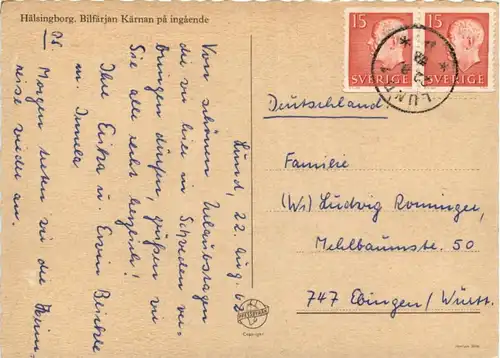 Hälsingborg. Bilfärjan Kärnan på ingående
Lund, 22. Aug. 62
Von schönen Urlaubstagen
die wir hier in Schweden ver-
bringen dürfen, grüßen wir
Sie alle recht herzlich!
Ihre Erika u. Erwin
m.
PS
Morgen treten wir die Heim-
reise wieder an.
15
SVERIGE
15
SVERIGE
LUND 1
Deutschland
Familie
(Ws) Ludwig Rominger,
Mehlbaumstr. 50
747 Ebingen/Württ.
PRESSFOTO
Copyright